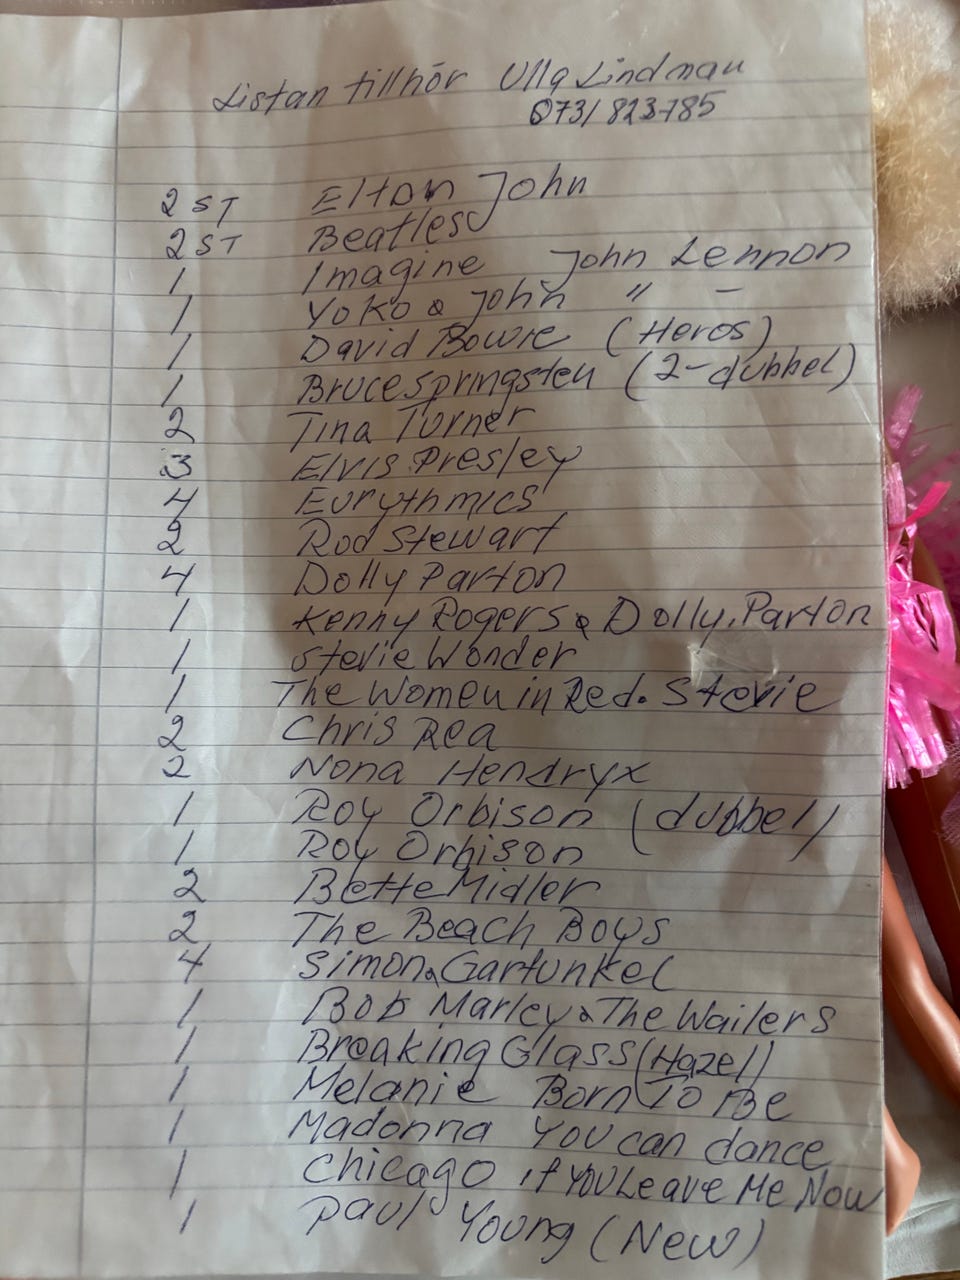 Listan tillhör Ulla Lindman
0731823785
2 ST Elton John
2 ST Beatles
1 Imagine John Lennon
1 Yoko & John " -
1 David Bowie (Heros)
1 Bruce Springsten (2-dubbel)
2 Tina Turner
3 Elvis Presley
4 Eurythmics
2 Rod Stewart
4 Dolly Parton
1 Kenny Rogers & Dolly Parton
1 Stevie Wonder
1 The Women in Red. Stevie
2 Chris Rea
2 Nona Hendryx
1 Roy Orbison (dubbel)
1 Roy Orbison
2 Bette Midler
2 The Beach Boys
4 Simon & Garfunkel
1 Bob Marley & The Wailers
1 Breaking Glass (Hazel)
1 Melanie Born To Be
1 Madonna You can dance
1 Chicago if You Leave Me Now
1 Paul Young (New)